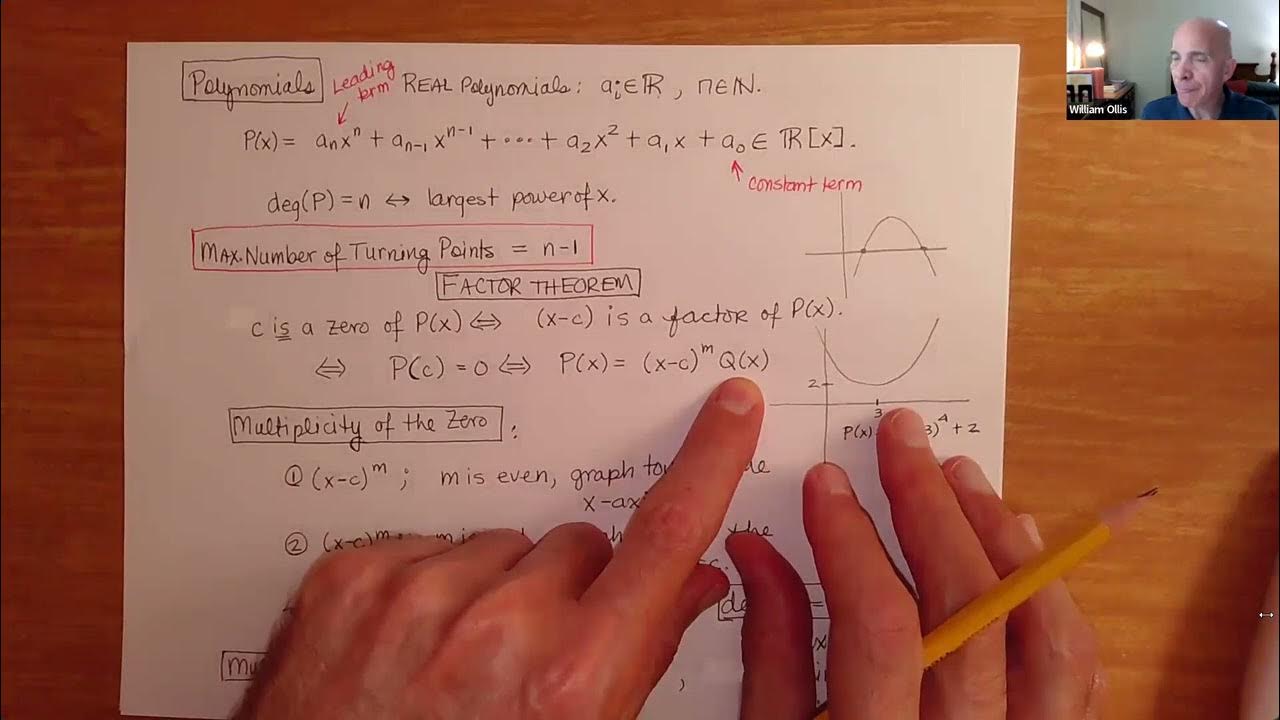 Polynomials
Leading term
REAL Polynomials: aᵢ∈ℝ, n∈ℕ.
P(x) = aₙxⁿ + aₙ₋₁xⁿ⁻¹ + ⋯ + a₂x² + a₁x + a₀ ∈ ℝ[x].
constant term
deg(P) = n ↔ largest power of x.
MAX. Number of Turning Points = n-1
FACTOR THEOREM
c is a zero of P(x) ⟺ (x-c) is a factor of P(x).
⟺ P(c) = 0 ⟺ P(x) = (x-c)ᵐ Q(x)
2
3
P(x) 3)⁴ + 2
Multiplicity of the Zero:
① (x-c)ᵐ; m is even, graph
x-ax
② (x-c)ᵐ; m is the
c.
de =
William Ollis